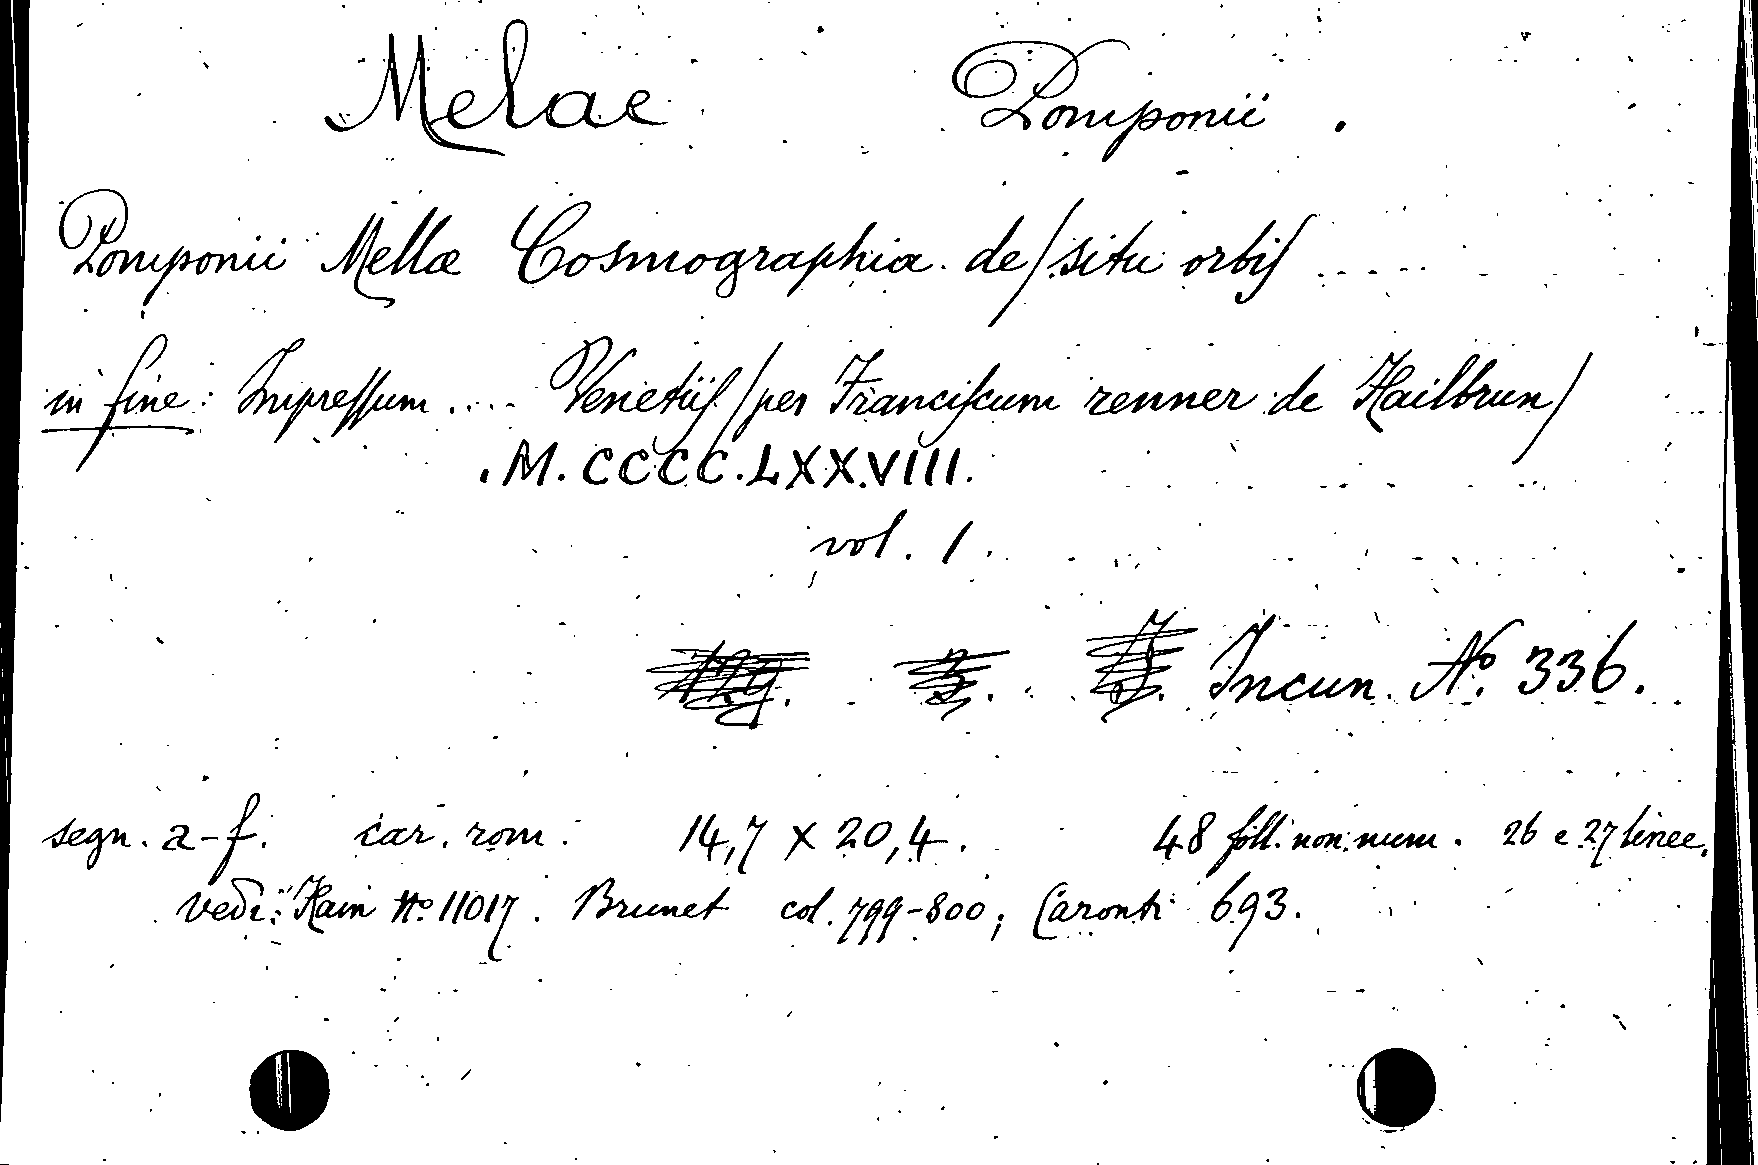 Melae Pomponii.
Pomponii Mellæ Cosmographia de/situ orbiſ .....
in fine: Impreſſum .... Venetiiſ/per Franciſcum renner de Hailbrun/
.M.CCCC.LXXVIII.
vol. 1.
Incun. Nº. 336.
segn. a-f. car. rom. 14,7 x 20,4. 48 foll. non num. 26 e 27 linee.
vedi: Hain Nº 11017. Brunet col. 799-800; Caronti 693.